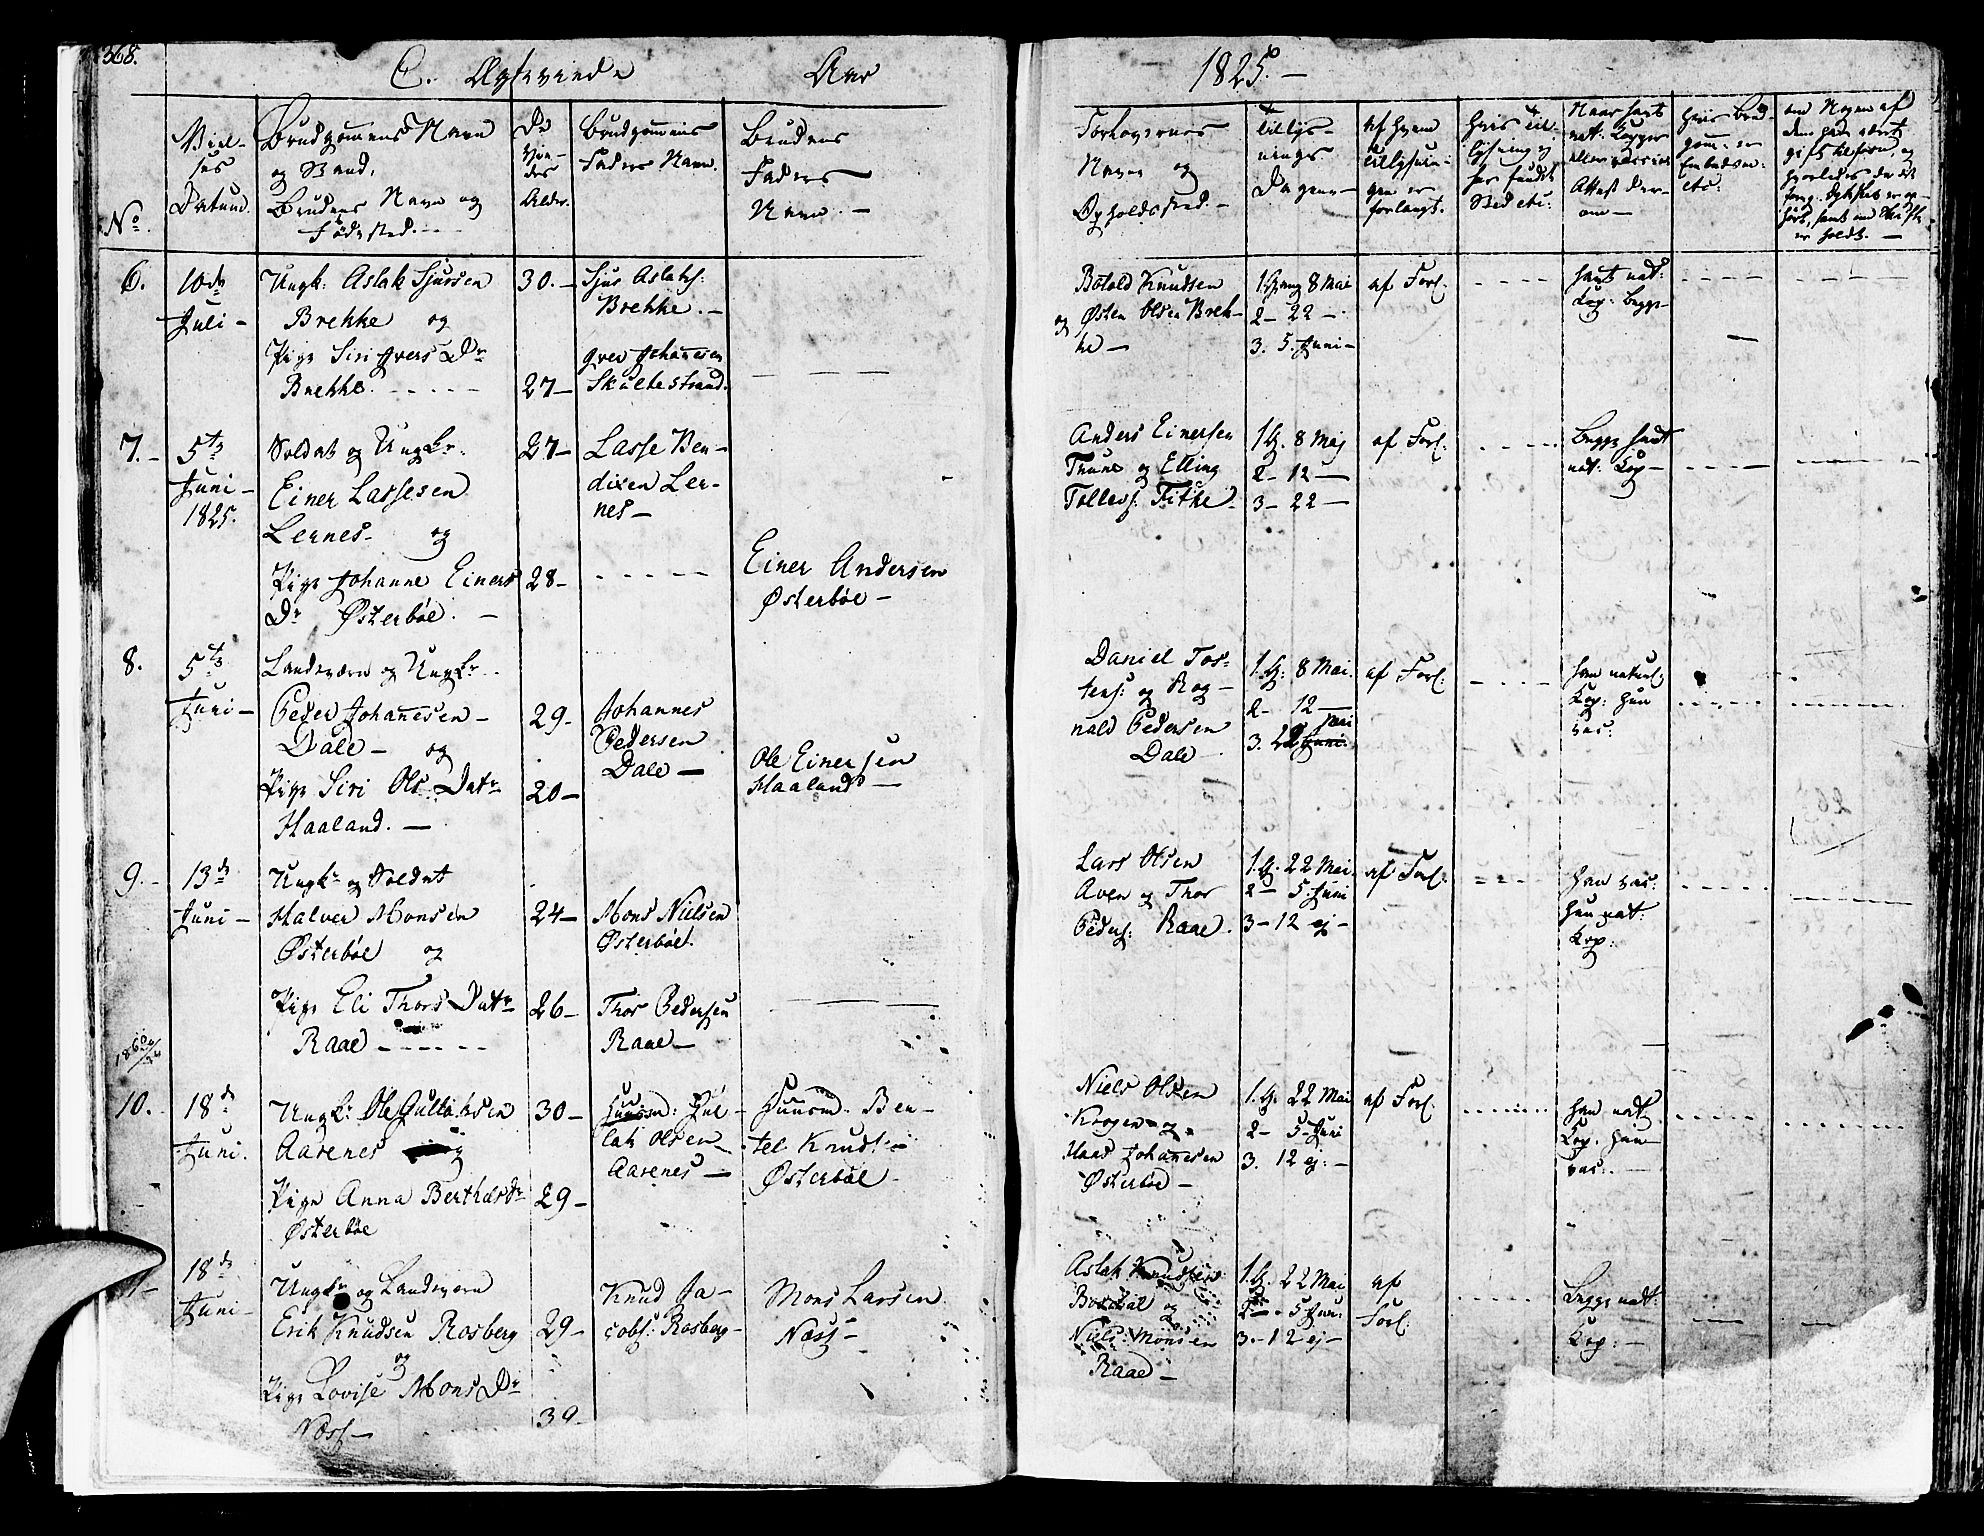 368.
C. Ægteviede Aar 1825. –
No.
Viel-
ses
Datum.
Brudgommens Navn
og Stand,
Brudens Navn og
Fødested. –
De
Vie-
des
Alder.
Brudgommens
Faders Navn.
Brudens
Faders
Navn. –
Forlovernes
Navne og
Opholdssted. –
Tillys-
nings
Dagene –
af hvem
tillysnin-
gen er
forlangt.
Naar havt
nat: Kopper
eller vaccine
Attest der-
om –
6.
10de
Juli –
Ungk: Aslak Sjursen
Brekke og
Pige Siri Ivers Dr
Brekke.
30. –
27 –
Sjur Aslaks:
Brekke. –
Iver Johannesen
Skultestrand.
Botold Knudsen
og Østen Olsen Brek-
ke –
1. Gang 8 Mai
2 – 22 –
3. 5. Juni –
af Forl:
havt nat:
Kop: begge
7. –
5te
Juni –
1825.
Soldat og Ungkr.
Einer Lassesen
Lernes – og
Pige Johanne Einers
Dr Østerbøe. –
27 –
28 –
Lasse Ben-
dixen Ler-
nes –
Einer Andersen
Østerbøe –
Anders Einersen
Trune og Elling
Tollevs: Fithe –
1. G. 8 Maj
2 – 12 –
3 – 22 –
af Forl:
Begge havt
nat: Kop –
8.
5te
Juni –
Landeværn og Ungkr.
Peder Johannesen –
Dale – og
Pige Siri Ols Datr
Haaland. –
29 –
20 –
Johannes
Pedersen
Dale –
Ole Einersen
Haaland –
Daniel Tos-
tens: og Rog-
nald Pedersen
Dale
1. G: 8 Mai.
2 – 12 –
3. 22 Mai
af Forl:
han naturl:
Kop: hun
vac:
9. –
13de
Juni –
Ungkr og Soldat
Halver Monsen
Østerbøe og
Pige Eli Thors Datr
Raae –
24 –
26 –
Mons Nielsen
Østerbøe.
Thor Pedersen
Raae –
Lars Olsen
Aven og Thor
Peders: Raae.
1. G. 22 Mai
2 – 5. Juni
3 – 12 ej –
af Forl:
han vac:
hun nat:
Kop:
10. –
18de
Juni.
Ungk: Ole Gullaksen
Aarenes og
Pige Anna Berthels Dr
Østerbøe
30 –
29 –
Huusm: Gul-
lak Olsen
Aarenes –
Huusm. Ben-
tel Knudsen
Østerbøe –
Niels Olsen
Krogen og
Haas Johannesen
Østerbøe –
1. G. 22 Mai
2 – 5 Juni
3. 12 ej: –
af Forl:
han nat:
Kop: hun
vac: –
18de
Juni –
Ungkr og Landeværn
Erik Knudsen Rosberg
og
Pige Lovise Mons Dr
Næss –
29 –
39 –
Knud Ja-
cobs: Rosberg –
Mons Larsen
Næss –
Aslak Knudsen
og
Niels Monsen
Raae –
1. G. 22 Mai
2 – 5 Juni
3 – 12 ej –
af
Forl:
Begge nat:
Kop: –